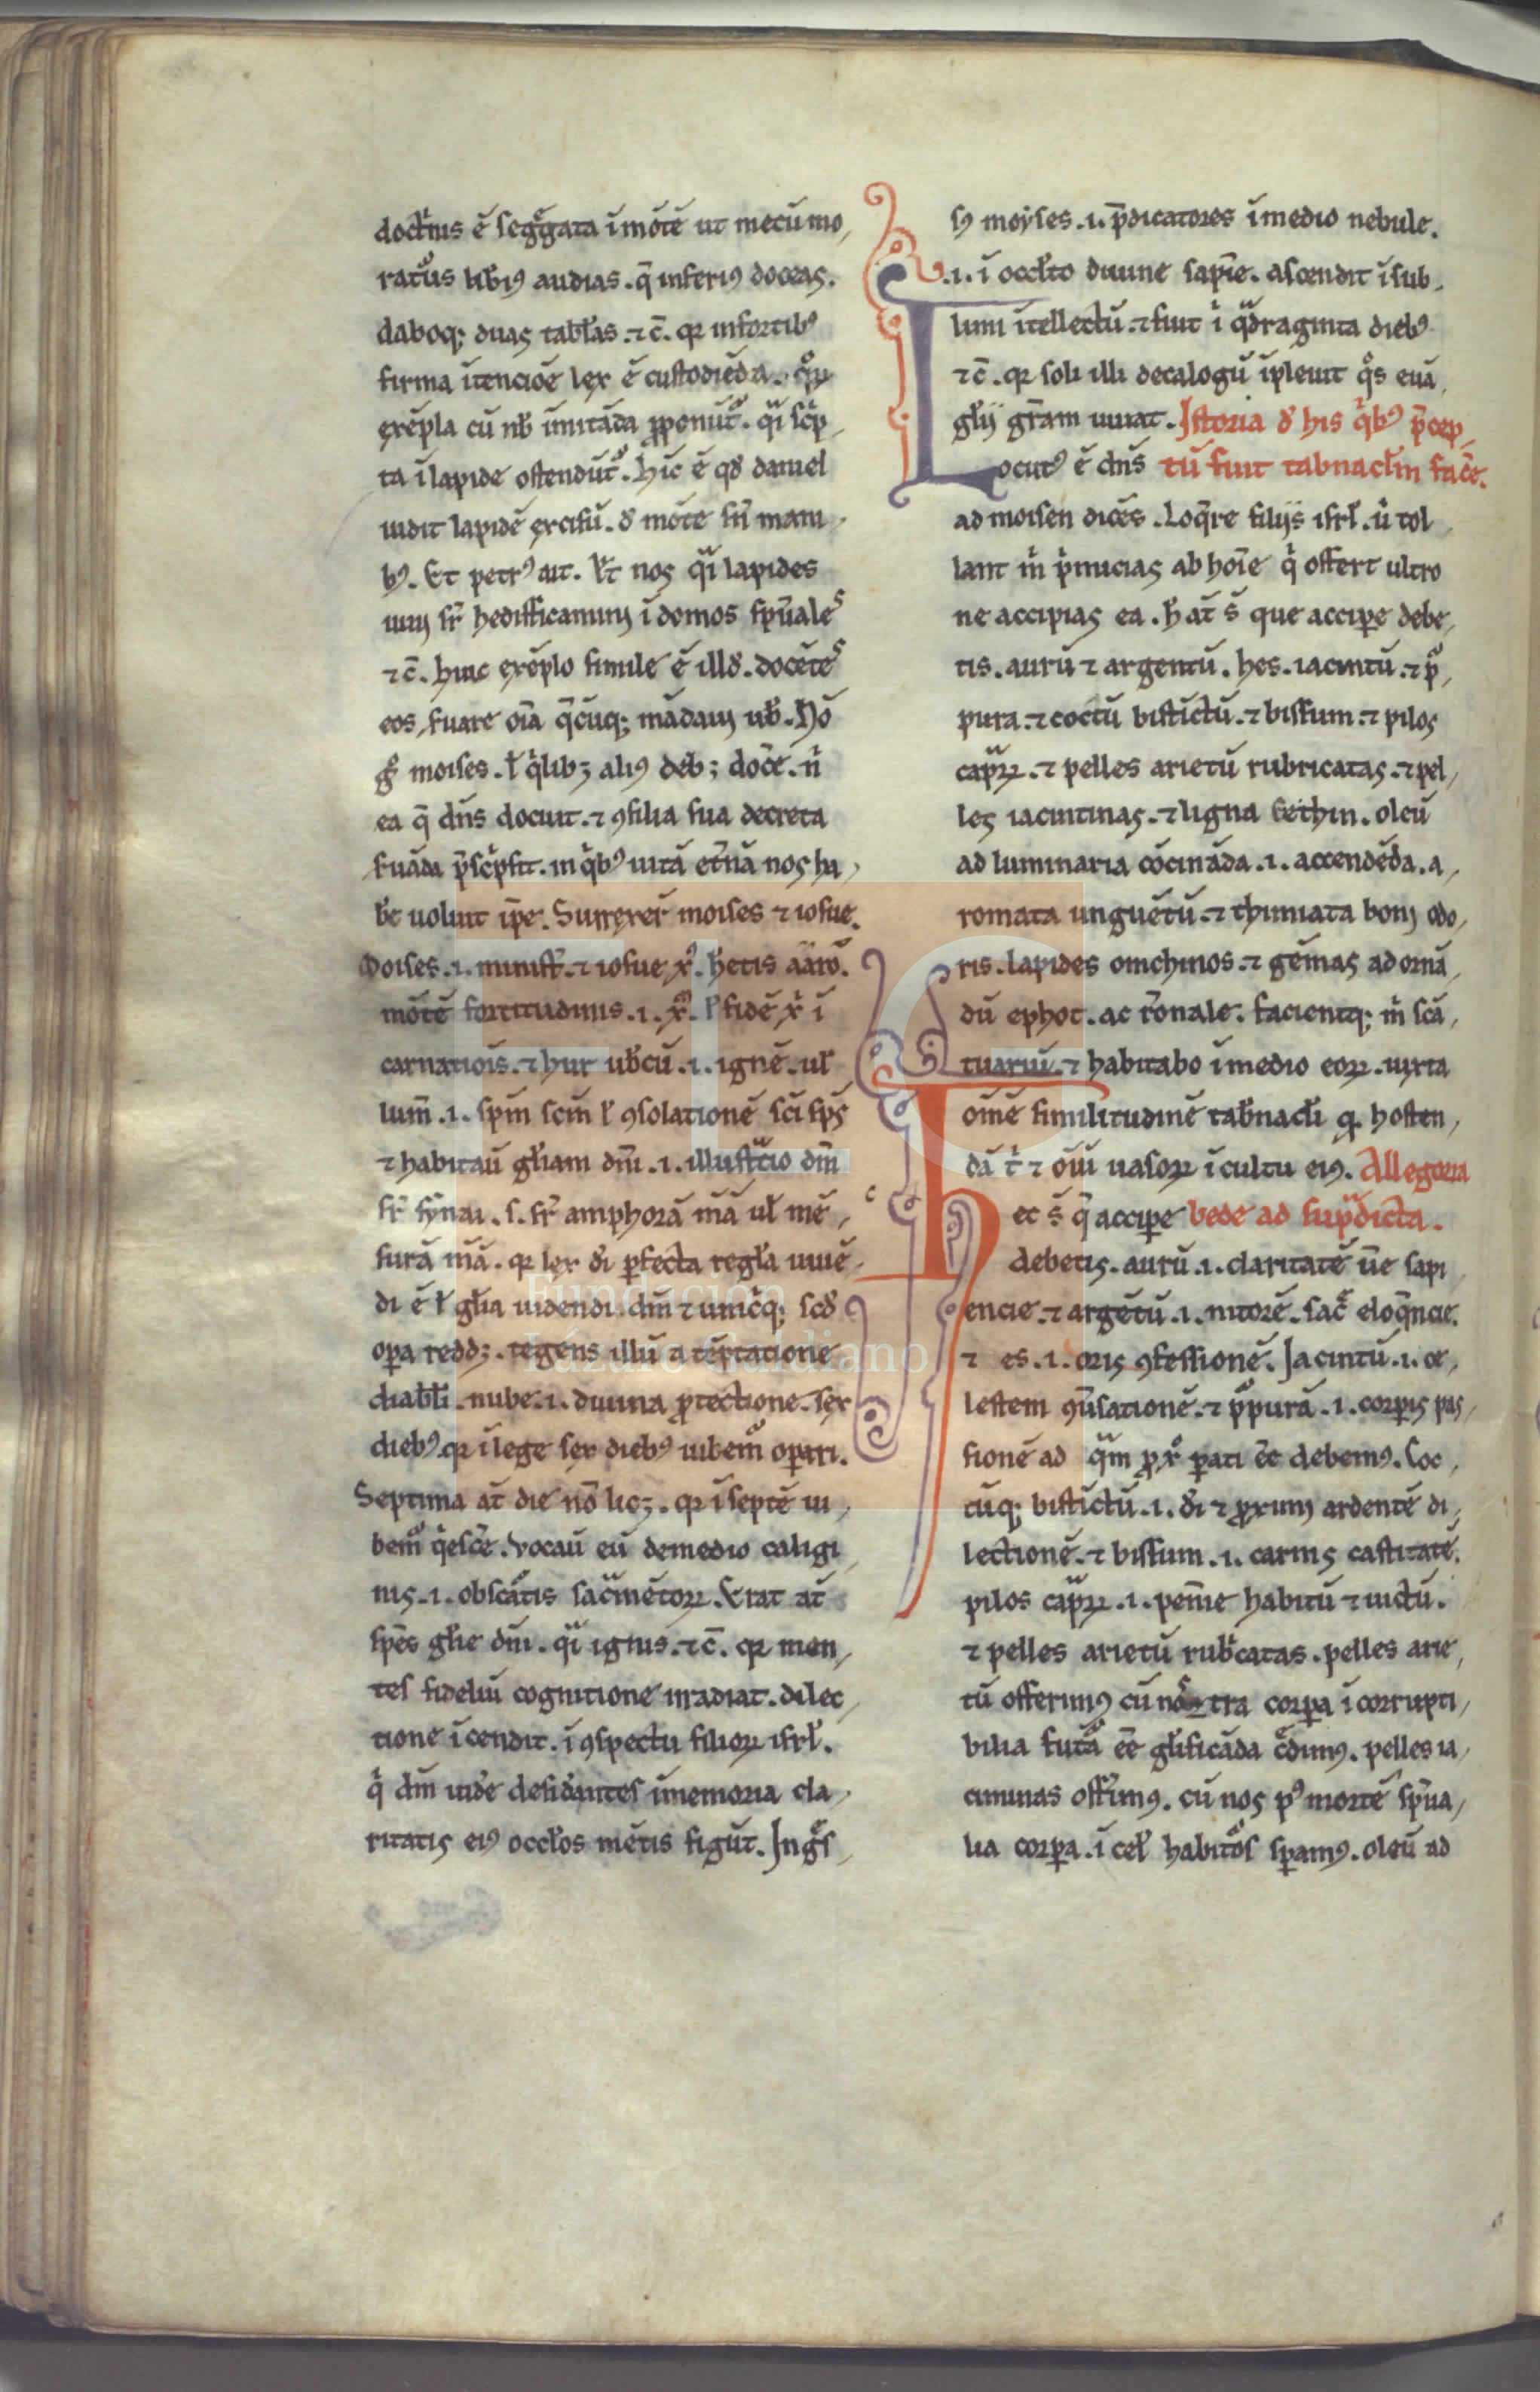 doct͛nis ē seg̃gata ī mōtē ut mecū mo,
ratus lib̃iꝰ audias. q̄ inferiꝰ doceas.
daboq; duas tab̃las. ⁊c̄. qꝛ in fortibꝰ
firma ītencioē lex ē custodiēda.
exēpla cū nb̃ imitāda ꝓponūt͛. qͣi sc̃p,
ta ī lapide ostendūt͛. hic ē qd̕ daniel
uidit lapidē excisū. d̕ mōte sn̄ mani,
bꝰ. Et petrꝰ ait. noſ qͣi lapides
uiui sr̄ hedifficamini ī domos sp̄uales
⁊c̄. huic exēplo simile ē illd̕. docētes
eos, ſuare oīa q̄cūq; mādaui ub̃. Nō
gͦ moises. ł qͥlib; aliꝰ deb; doc̄e. nͥ
ea q̄ dn̄s docuit. ⁊ ꝯsilia sua decreta
ſuāda p̄sc̃psit. in qͥbꝰ uitā et̃nā nos ha,
b̃e uoluit ip̄e. Surrexer̄ moises ⁊ iosue.
Moises .i. minist̃. ⁊ iosue xꝰ. h̃etis aarō.
mōtē fortitudinis .i. xͫ. ł fidē xͥ ī
carnatiois. ⁊ hur ub̃cū .i. ignē. ul̄
lum̄ .i. sp̄m sc̄m ł ꝯsolationē sc̄i sp̄s
⁊ habitaū gl̄iam dm̄ .i. illustͣcio dm̄
sr̄ synai. s. sr̄ amphorā m̄ā ul̄ mē,
surā m̄ā. qꝛ lex d̄i ꝑfecta regl̄a uiuē,
di ē ł gl̄ia uidendi dm̄ ⁊ unicͥq; scd̕
oꝑa redd;. tegens illū a tēptatione
diab̃li nube .i. diuina ꝓtectione. sex
diebꝰ. qꝛ ī lege sex diebꝰ iubem͛ oꝑari.
Septima at̄ die nō lic;. qꝛ ī septē iu,
bem͛ qͥesc̃e. Vocaū eū de medio caligi,
nis .i. obsc̃atis sac̃mētoꝝ. Erat at̄
sp̄es gl̄ie dm̄. qͣi ignis. ⁊c̄. qꝛ men,
tes fideliū cognitione irradiat. dilec,
tione īcendit. ī ꝯspectu filioꝝ isrl̄.
qͥ dm̄ uid̃e desid̃antes ī memoria cla,
ritatis eiꝰ occl̄os mētis figūt. Ingͤs,
sꝰ moyses .i. p̄dicatores ī medio nebule.
.i. ī occl̄to diuine sapīe. ascendit ī sub,
limi ītellectū. ⁊ fuit iͥ qͣdraginta diebꝰ
⁊c̄. qꝛ soli illi decalogū īpleuit qͦs euā,
gl̄ij gr̄am iuuat. Istoria d̕ his qͥbꝰ p̄cep,
Locutꝰ ē dn̄s tū fuit tabnacl̄m fac̃e.
ad moisen dicēs. Loq̃re filijs isrl̄. ū̕ tol,
lant mͥ pͥmicias ab hoīe qͥ offert ultro
ne accipias ea. h̃ at̄ s̄ que accipe debe,
tis. aurū ⁊ argentū. hes. iacintū. ⁊ p͛,
pura. ⁊ coctū bistictū. ⁊ bissum. ⁊ pilos
capͣꝝ. ⁊ pelles arietū rubricatas. ⁊ pel,
les iacintinas. ⁊ ligna sethin. oleū
ad luminaria cōcināda .i. accendēda. a,
romata unguētū. ⁊ thimiata boni odo,
ris. lapides onichinos. ⁊ gēmas ad ornā,
dū ephot. ac r̃onale. facientq; mͥ scā,
tuariū. ⁊ habitabo ī medio eoꝝ. iuxta
omē similitudinē tab̃nacl̄i q̨ hosten,
dā tͥ ⁊ oīū uasoꝝ ī cultu eiꝰ. Allegoria
Hec s̄ q̄ accipe bede ad supͣdicta.
debetis. aurū .i. claritatē ūe sapi,
encie. ⁊ argētū .i. nitorē. sac̃ eloq̄ncie.
⁊ es .i. oris ꝯfessionē. Jacintū .i. ce,
lestem ꝯūsationē. ⁊ p͛purā .i. corꝑis pas,
sionē ad qͣm ꝓ xͦ ꝑati ēe debemꝰ. Coc,
cūq; bistictū .i. d̄i ⁊ ꝓximi ardentē di,
lectionē. ⁊ bissum .i. carnis castitatē.
pilos capͣꝝ .i. penīe habitū ⁊ uictū.
⁊ pelles arietū rub̃catas. pelles arie,
tū offerimꝰ cū corꝑa ī corrupti,
bilia futͣa ēe gl̄ificāda c̃dimꝰ. pelles ia,
cintinas off̃imꝰ. cū nos pꝰ mortē sp̄ua,
lia corꝑa. ī cel̄ habitos sꝑamꝰ. oleū ad